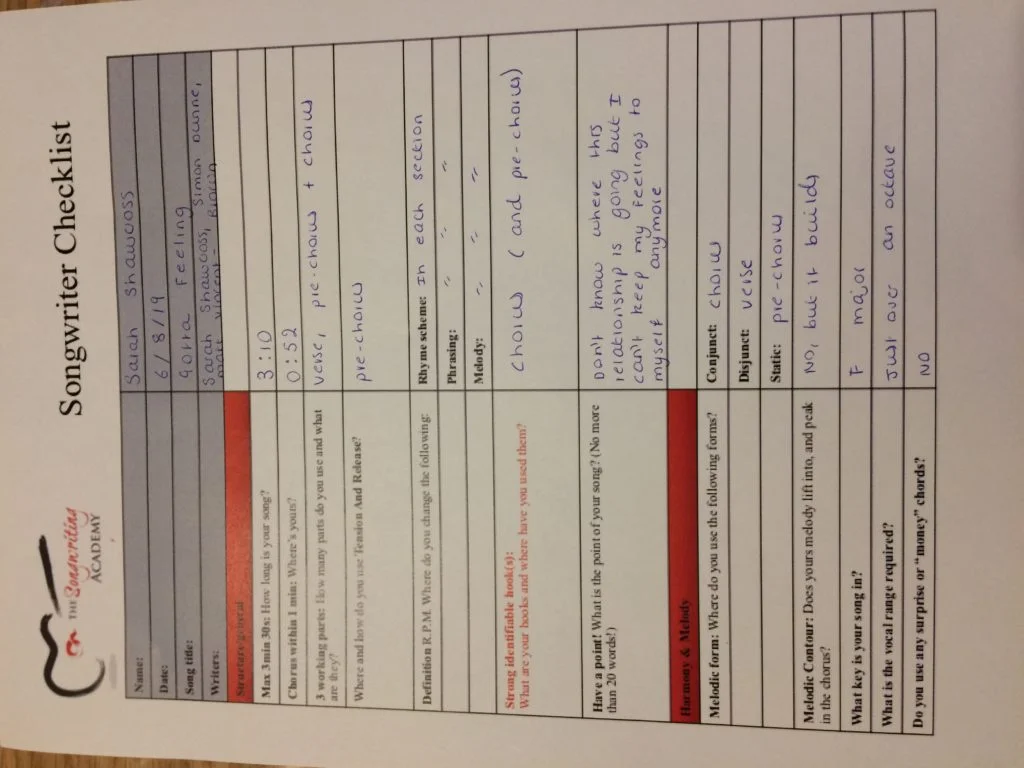 Songwriter Checklist
THE Songwriting
ACADEMY
Name: Sarah Shawcross
Date: 6/8/19
Song title: Gotta Feeling
Writers: Sarah Shawcross, Simon Dunne,
Matt Vincent-
Structure
Max 3min 30s: How long is your song? 3:10
Chorus within 1 min: Where's yours? 0:52
3 working parts: How many parts do you use and what
are they? verse, pre-chorus + chorus
Where and how do you use Tension And Release? pre-chorus
Definition R.P.M. Where do you change the following: Rhyme scheme: In each section
Phrasing: " " "
Melody: " " "
Strong identifiable hook(s):
What are your hooks and where have you used them? chorus (and pre-chorus)
Have a point! What is the point of your song? (No more
than 20 words!)
Don't know where this
relationship is going but I
can't keep my feelings to
myself anymore
Harmony & Melody
Melodic form: Where do you use the following forms? Conjunct: chorus
Disjunct: verse
Static: pre-chorus
Melodic Contour: Does yours melody lift into, and peak
in the chorus? No, but it builds
What key is your song in? F major
What is the vocal range required? Just over an octave
Do you use any surprise or "money" chords? NO